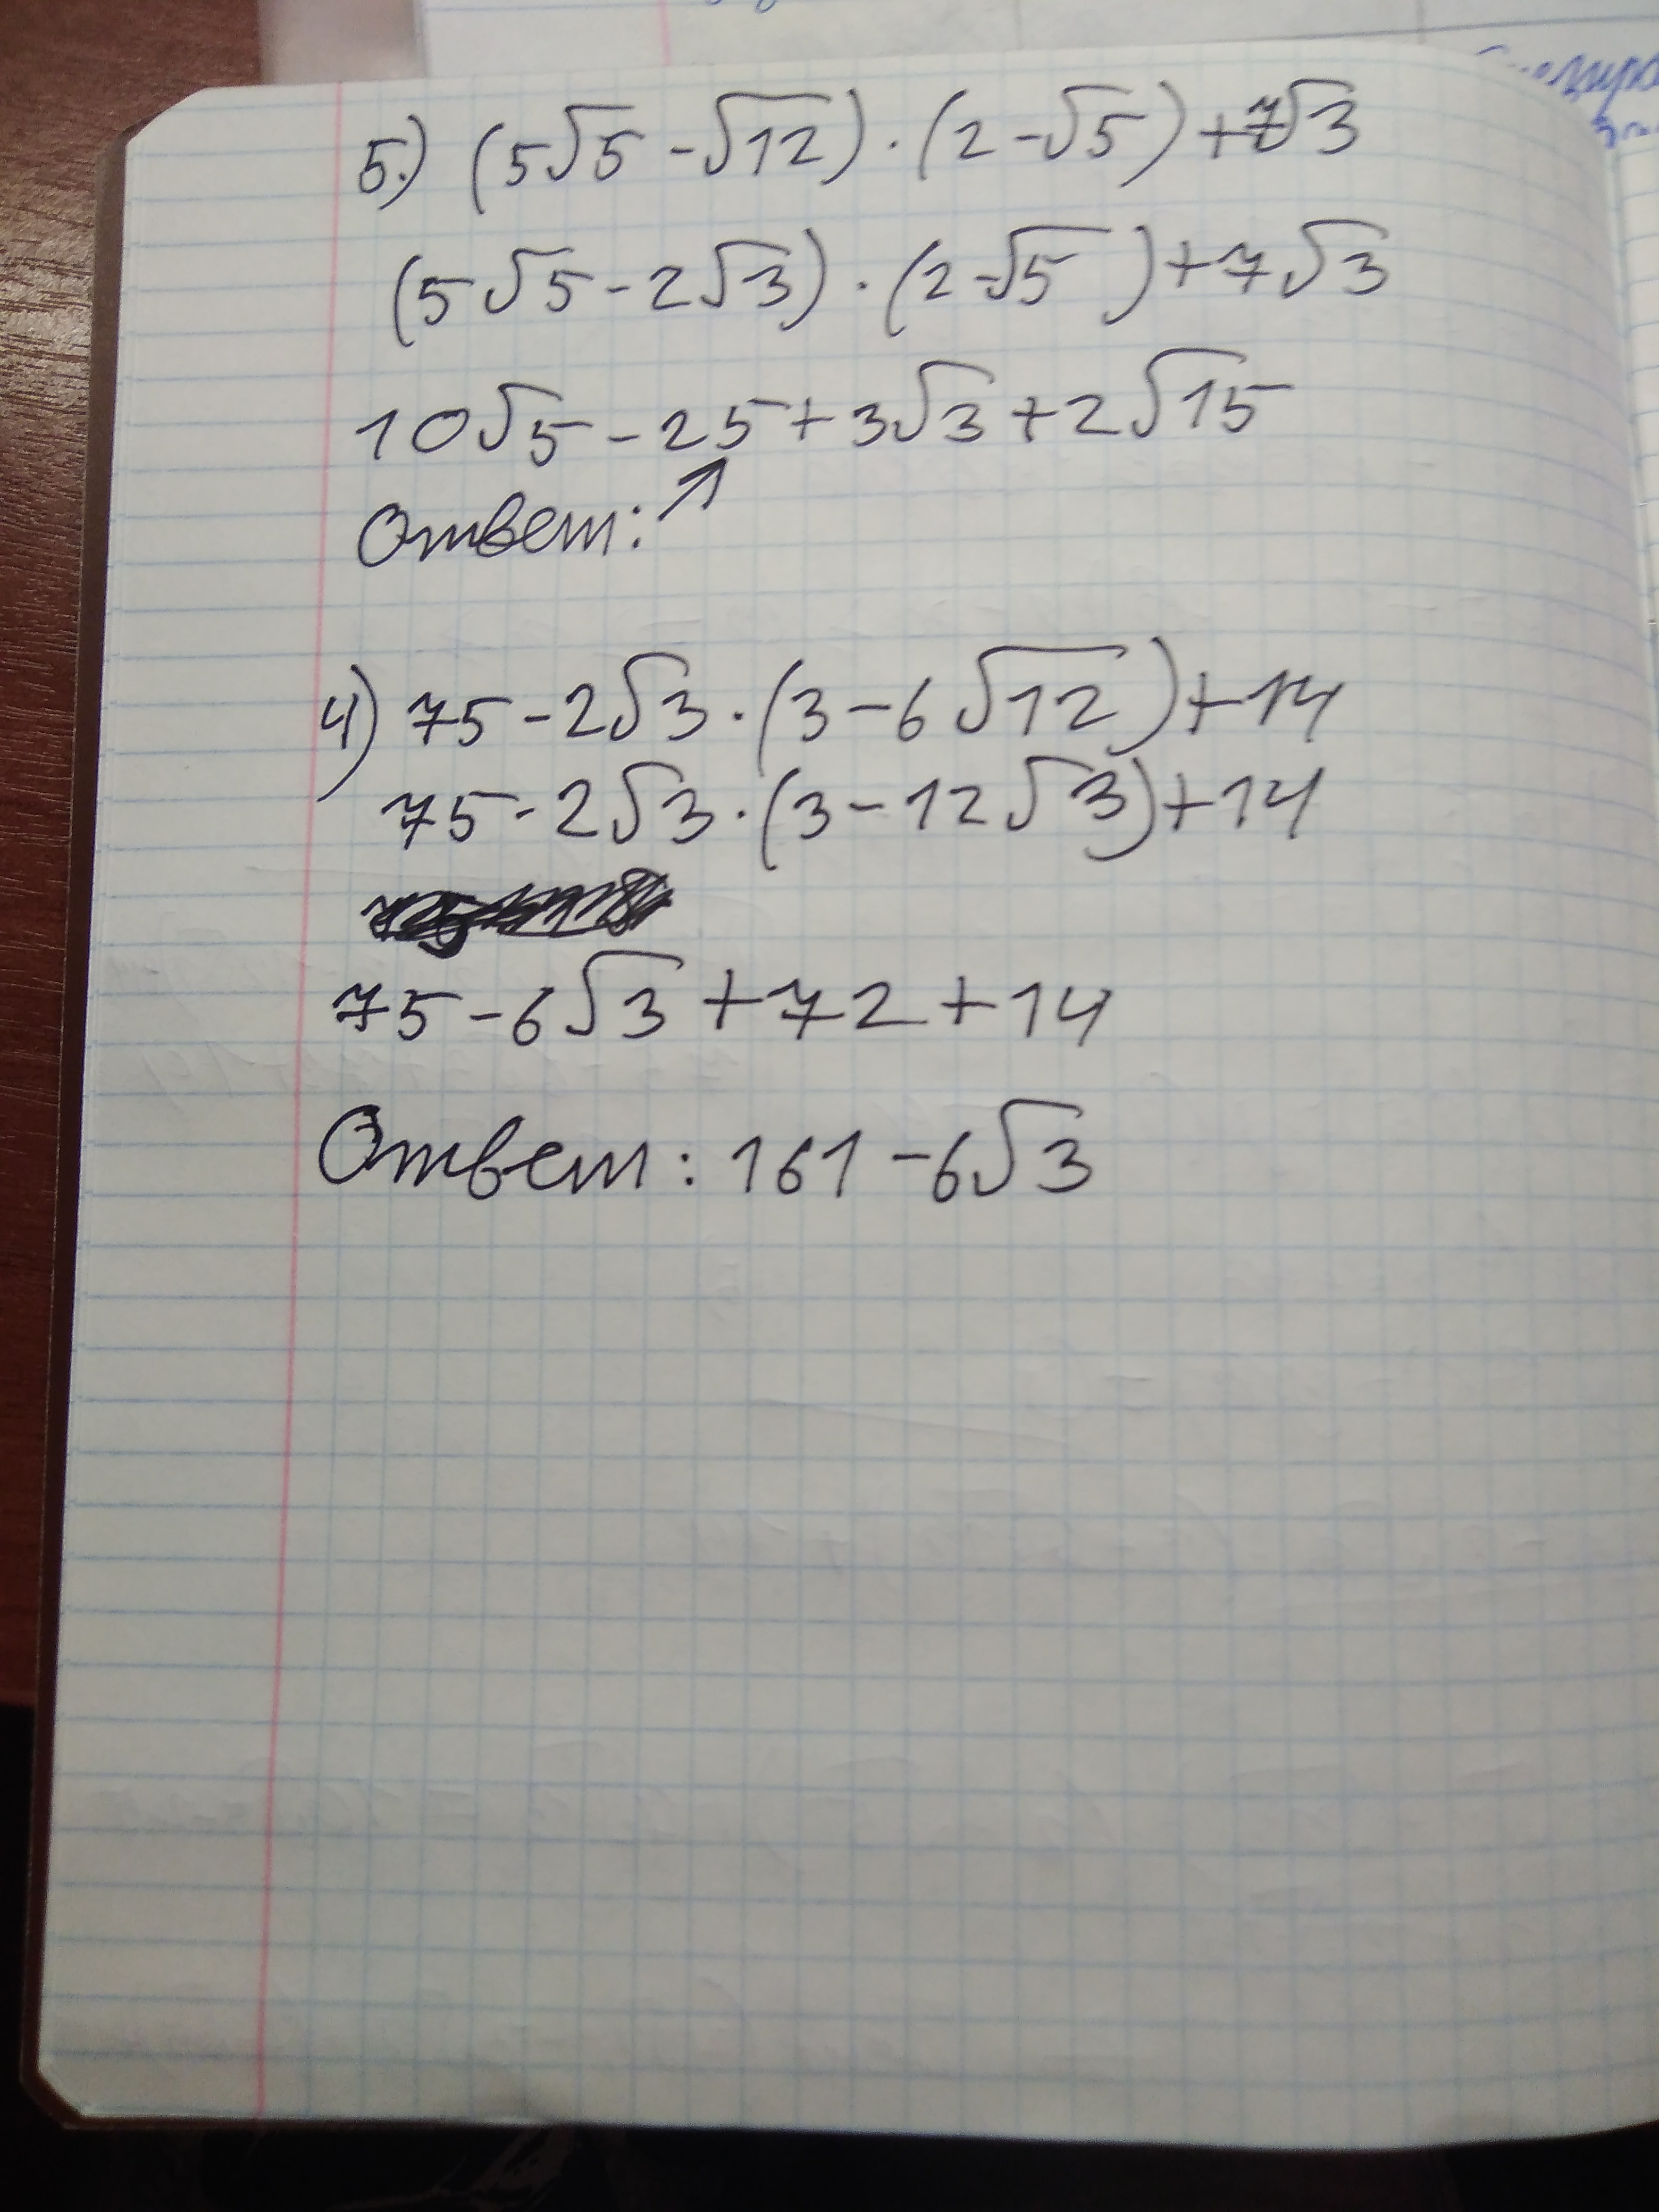 5.) (5√5 - √12) · (2 - √5) + 7√3
(5√5 - 2√3) · (2 - √5) + 7√3
10√5 - 25 + 3√3 + 2√15
Ответ: ↗
4) 75 - 2√3 · (3 - 6√12) + 14
75 - 2√3 · (3 - 12√3) + 14
75 - 6√3 + 72 + 14
Ответ: 161 - 6√3